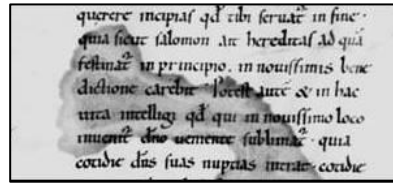 querere incipias qd̄ tibi seruat̄ in fine·
quia sicut salomon ait hereditas ad quā
festinat̄ in principio, in nouissimis bene
dictione carebit· Potest autē & in hac
uita intelligi qd̄ qui in nouissimo loco
inuenit̄ dño uemente sublimat̄· quia
cotidie dñs suas nuptias intrat· cotidie